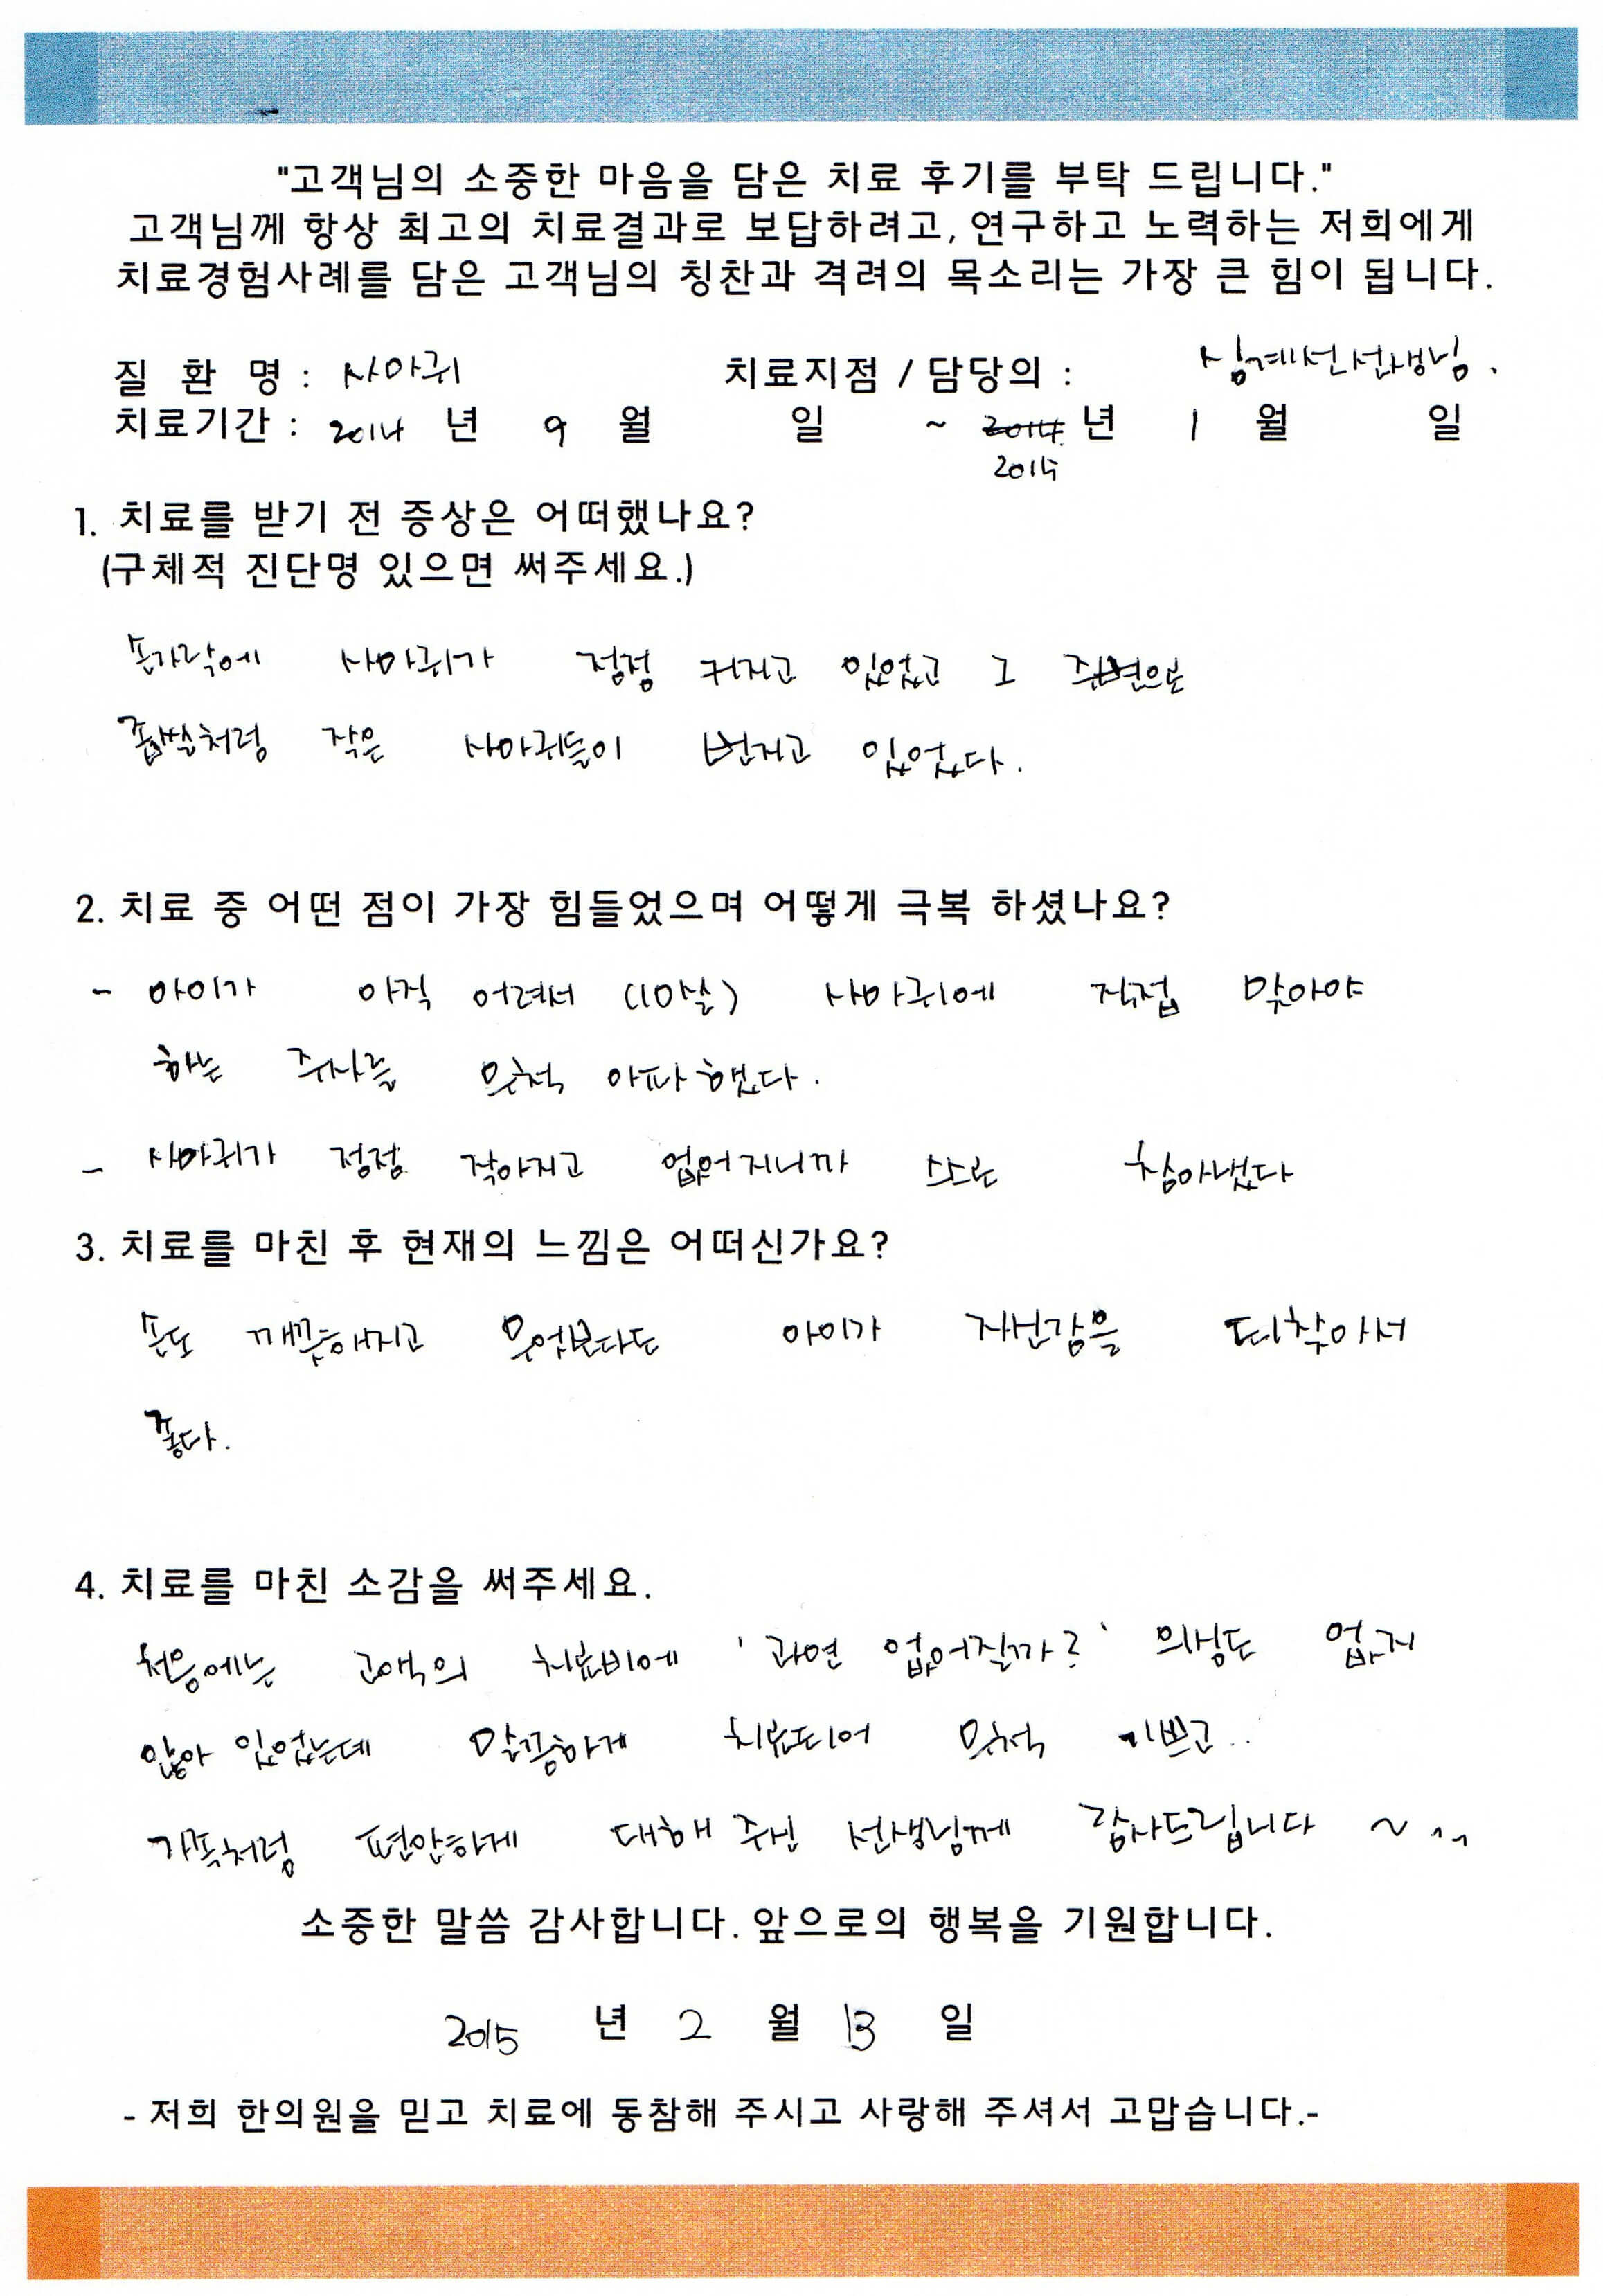 "고객님의 소중한 마음을 담은 치료 후기를 부탁 드립니다."
고객님께 항상 최고의 치료결과로 보답하려고, 연구하고 노력하는 저희에게
치료경험사례를 담은 고객님의 칭찬과 격려의 목소리는 가장 큰 힘이 됩니다.
질 환 명 : 사마귀 치료지점 / 담당의 : 심계선선생님.
치료기간 : 2014 년 9 월 일 ~ 2014 년 1 월 일
2015
1. 치료를 받기 전 증상은 어떠했나요?
(구체적 진단명 있으면 써주세요.)
손가락에 사마귀가 점점 커지고 있었고 그 주변으로
좁쌀처럼 작은 사마귀들이 번지고 있었다.
2. 치료 중 어떤 점이 가장 힘들었으며 어떻게 극복 하셨나요?
- 아이가 아직 어려서 (10살) 사마귀에 직접 맞아야
하는 주사를 무척 아파했다.
- 사마귀가 점점 작아지고 없어지니까 스스로 참아냈다
3. 치료를 마친 후 현재의 느낌은 어떠신가요?
손도 깨끗해지고 무엇보다도 아이가 자신감을 되찾아서
좋다.
4. 치료를 마친 소감을 써주세요.
처음에는 고액의 치료비에 '과연 없어질까?' 의심도 없지
않아 있었는데 말끔하게 치료되어 무척 기쁘고..
가족처럼 편안하게 대해 주신 선생님께 감사드립니다 ~ ^^
소중한 말씀 감사합니다. 앞으로의 행복을 기원합니다.
2015 년 2 월 13 일
- 저희 한의원을 믿고 치료에 동참해 주시고 사랑해 주셔서 고맙습니다.-